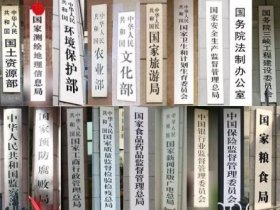 中华人民共和国
国土资源部
国家测绘地理信息局
中华人民共和国
环境保护部
中华人民共和国
农业部
中华人民共和国
文化部
中华人民共和国
国家旅游局
中华人民共和国
国家卫生和计划生育委员会
国家安全生产监督管理总局
国务院法制办公室
中华人民共和国监察部
国家预防腐败局
中华人民共和国
国家工商行政管理总局
中华人民共和国
国家质量监督检验检疫总局
国家食品药品监督管理总局
国家新闻出版广电总局
中国银行业监督管理委员会
中国保险监督管理委员会
国家粮食局